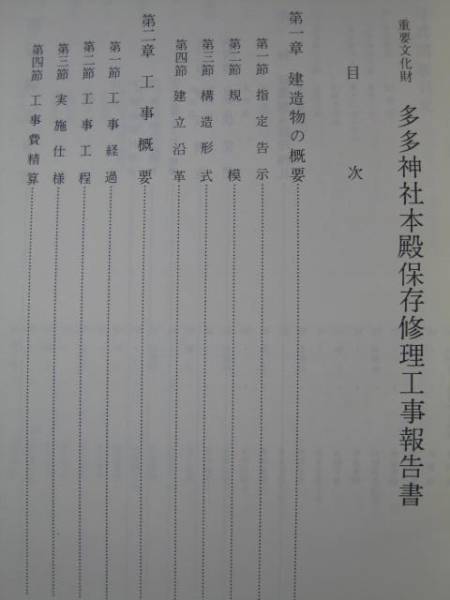 重要文化財
多多神社本殿保存修理工事報告書
目次
第一章 建造物の概要
第一節 指定告示
第二節 規模
第三節 構造形式
第四節 建立沿革
第二章 工事概要
第一節 工事経過
第二節 工事工程
第三節 実施仕様
第四節 工事費精算